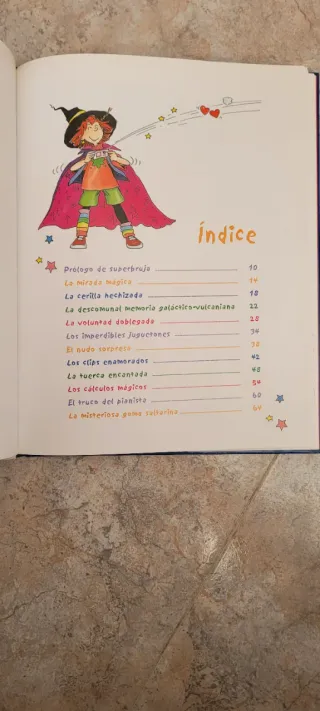 Índice
Prólogo de superbruja 10
La mirada mágica 14
La cerilla hechizada 18
La descomunal memoria galáctico-vulcaniana 22
La voluntad doblegada 28
Los imperdibles juguetones 34
El nudo sorpresa 38
Los clips enamorados 42
La tuerca encantada 48
Los cálculos mágicos 54
El truco del pianista 60
La misteriosa goma saltarina 64